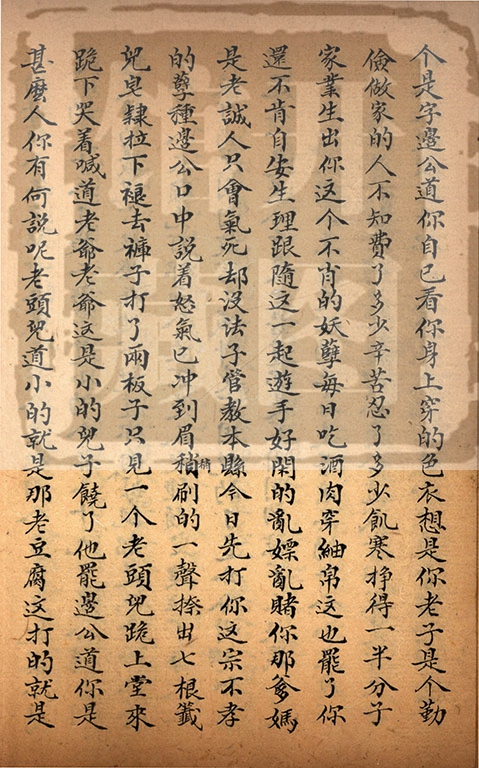 个是字邊公道你自已看你身上穿的色衣想是你老子是个勤
儉做家的人不知費了多少辛苦忍了多少飢寒掙得一半分子
家業生出你这个不肖的妖孽每日吃酒肉穿紬帛这也罷了你
還不肯自安生理跟隨这一起遊手好閑的亂嫖亂賭你那爹媽
是老誠人只會氣死却没法子管教本縣今日先打你这宗不孝
的孽種邊公口中説着怒氣已冲到眉稍刷的一聲捺出七根籤
兒皂隸拉下褪去褲子打了兩板子只見一个老頭兒跪上堂來
跪下哭着喊道老爺老爺这是小的兒子饒了他罷邊公道你是
甚麽人你有何説呢老頭兒道小的就是那老豆腐这打的就是